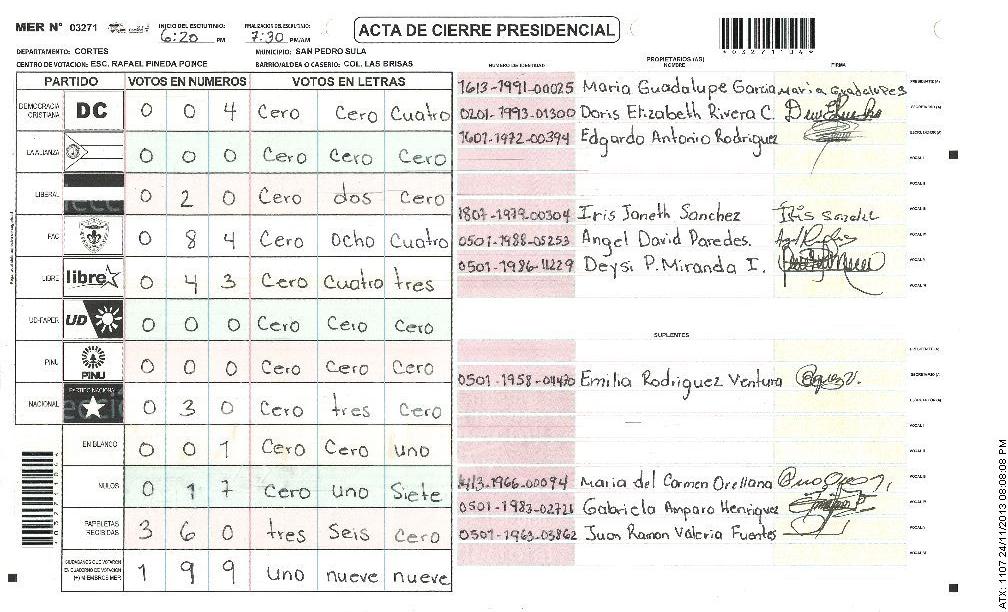 MER N° 03271
INICIO DEL ESCRUTINIO: 6:20 PM
FINALIZACION DEL ESCRUTINIO: 7:30 PM/AM
ACTA DE CIERRE PRESIDENCIAL
DEPARTAMENTO: CORTES
MUNICIPIO: SAN PEDRO SULA
CENTRO DE VOTACION: ESC. RAFAEL PINEDA PONCE
BARRIO/ALDEA O CASERIO: COL. LAS BRISAS
PARTIDO VOTOS EN NUMEROS VOTOS EN LETRAS
DEMOCRACIA CRISTIANA DC 0 0 4 Cero Cero Cuatro
LA ALIANZA 0 0 0 Cero Cero Cero
LIBERAL 0 2 0 Cero dos Cero
PAC 0 8 4 Cero Ocho Cuatro
LIBRE libre 0 4 3 Cero Cuatro tres
UD-FAPER UD 0 0 0 Cero Cero Cero
PINU PINU 0 0 0 Cero Cero Cero
NACIONAL PARTIDO NACIONAL 0 3 0 Cero tres Cero
EN BLANCO 0 0 1 Cero Cero uno
NULOS 0 1 7 Cero uno Siete
PAPELETAS RECIBIDAS 3 6 0 tres Seis cero
CIUDADANOS QUE VOTARON EN CUADERNO DE VOTACION (+) MIEMBROS MER 1 9 9 uno nueve nueve
PROPIETARIOS (AS)
NUMERO DE IDENTIDAD NOMBRE FIRMA
1613-1991-00025 Maria Guadalupe Garcia Maria Guadalupe PRESIDENTE(A)
0201-1993-01300 Doris Elizabeth Rivera C. SECRETARIO(A)
1601-1972-00394 Edgardo Antonio Rodriguez ESCRUTADOR(A)
VOCAL I
VOCAL II
1807-1979-00304 Iris Janeth Sanchez Iris Sanchez VOCAL III
0501-1988-05253 Angel David Paredes. VOCAL IV
0501-1986-11229 Deysi P. Miranda I. VOCAL V
VOCAL VI
SUPLENTES
PRESIDENTE(A)
0501-1958-04430 Emilia Rodriguez Ventura SECRETARIO(A)
ESCRUTADOR(A)
VOCAL I
VOCAL II
1413-1966-00094 Maria del Carmen Orellana VOCAL III
0501-1983-02721 Gabriela Amparo Henriquez VOCAL IV
0501-1963-03862 Juan Ramon Valeria Fuentes VOCAL V
VOCAL VI
ATX: 1107 24/11/2013 08:08:08 PM